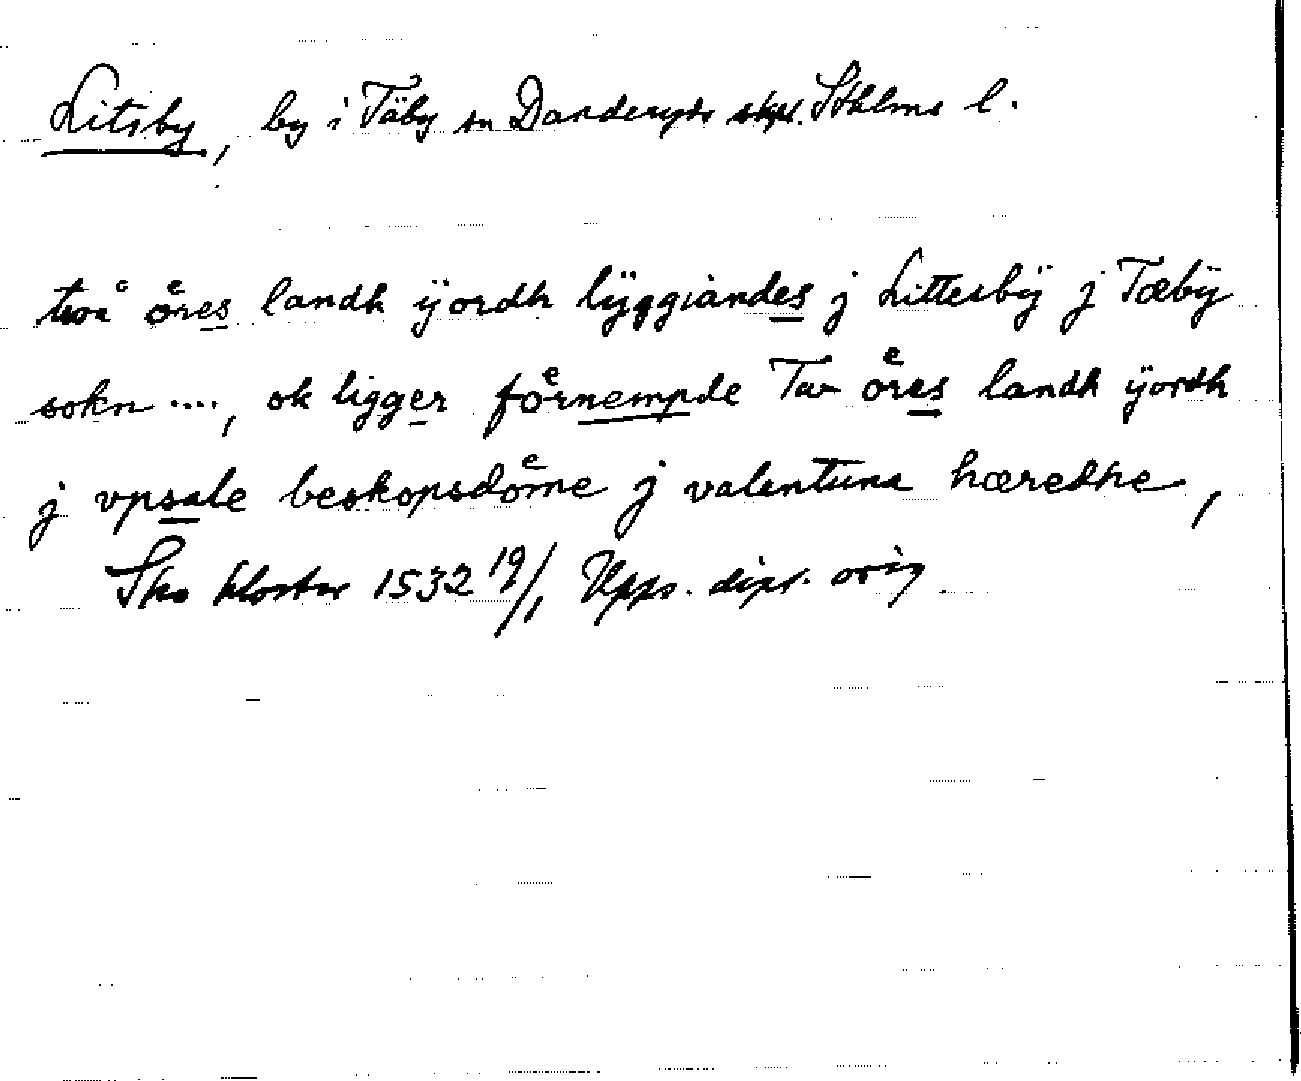 Litsby, by i Täby sn Danderyds skpl. Sthlms l.
två oͤres landh ÿordh lÿggiandes j Littesbÿ j Tæbÿ
sokn ...., ok ligger foͤrnempde Tw oͤres landh ÿordh
j vpsale beskopsdoͤme j valentuna hæredhe,
Sko kloster 1532 19/1 Upps. dipl. orig.